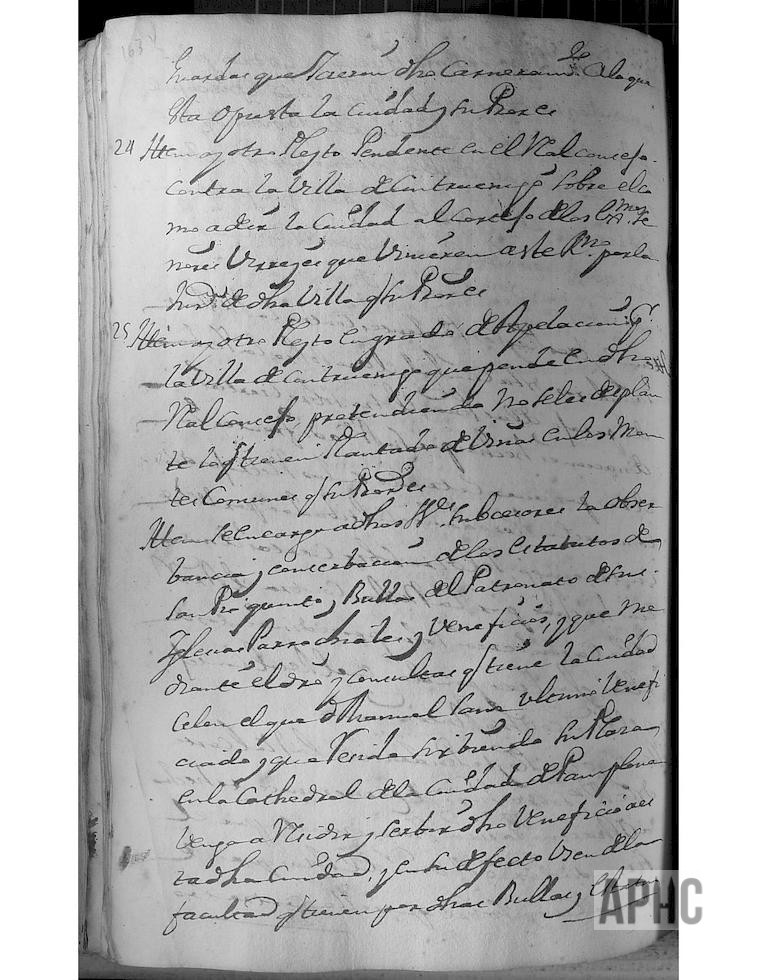 163 v
Guardas que dho Carneram.to A la que
Esta opuesta la Ciudad y su Proces
24 Ittem ay otro Pleyto Pendente en el Real consejo
contra la Villa de Cintruenigo sobre el co
mo a de ir la Ciudad al Cortejo de los Ex.mos Se
nores Virreyes que Vinieren a este R.no por la
Jur.on de dha Villa q su Proces
25 Ittem ay otro Pleyto en grado de Apelacion
la Villa de Cintruenigo que pende en dho
Real Consejo pretendiendo No se les desplan
te lo q tienen Plantado de Viñas en los Mon
tes Comunes q su Proces
Ittem se encarga a dhos Subcesores la obser
bancia y conserbacion de los Estatutos de
y Bullas del Patronato de sus
Yglesias Parrochiales y Veneficios, y que Me
diante el dro y Consultas q tiene la Ciudad
celen el que Dn Manuel Sanz ultimo Venefi
ciado y que Reside sirbiendo su Plaza
en la Cathedral de la Ciudad de Pamplona
Venga a Residir y serbir dho Veneficio a es
ta dha Ciudad, y en su defecto Usen de la
facultad q tienen por dhas Bullas y
APHC